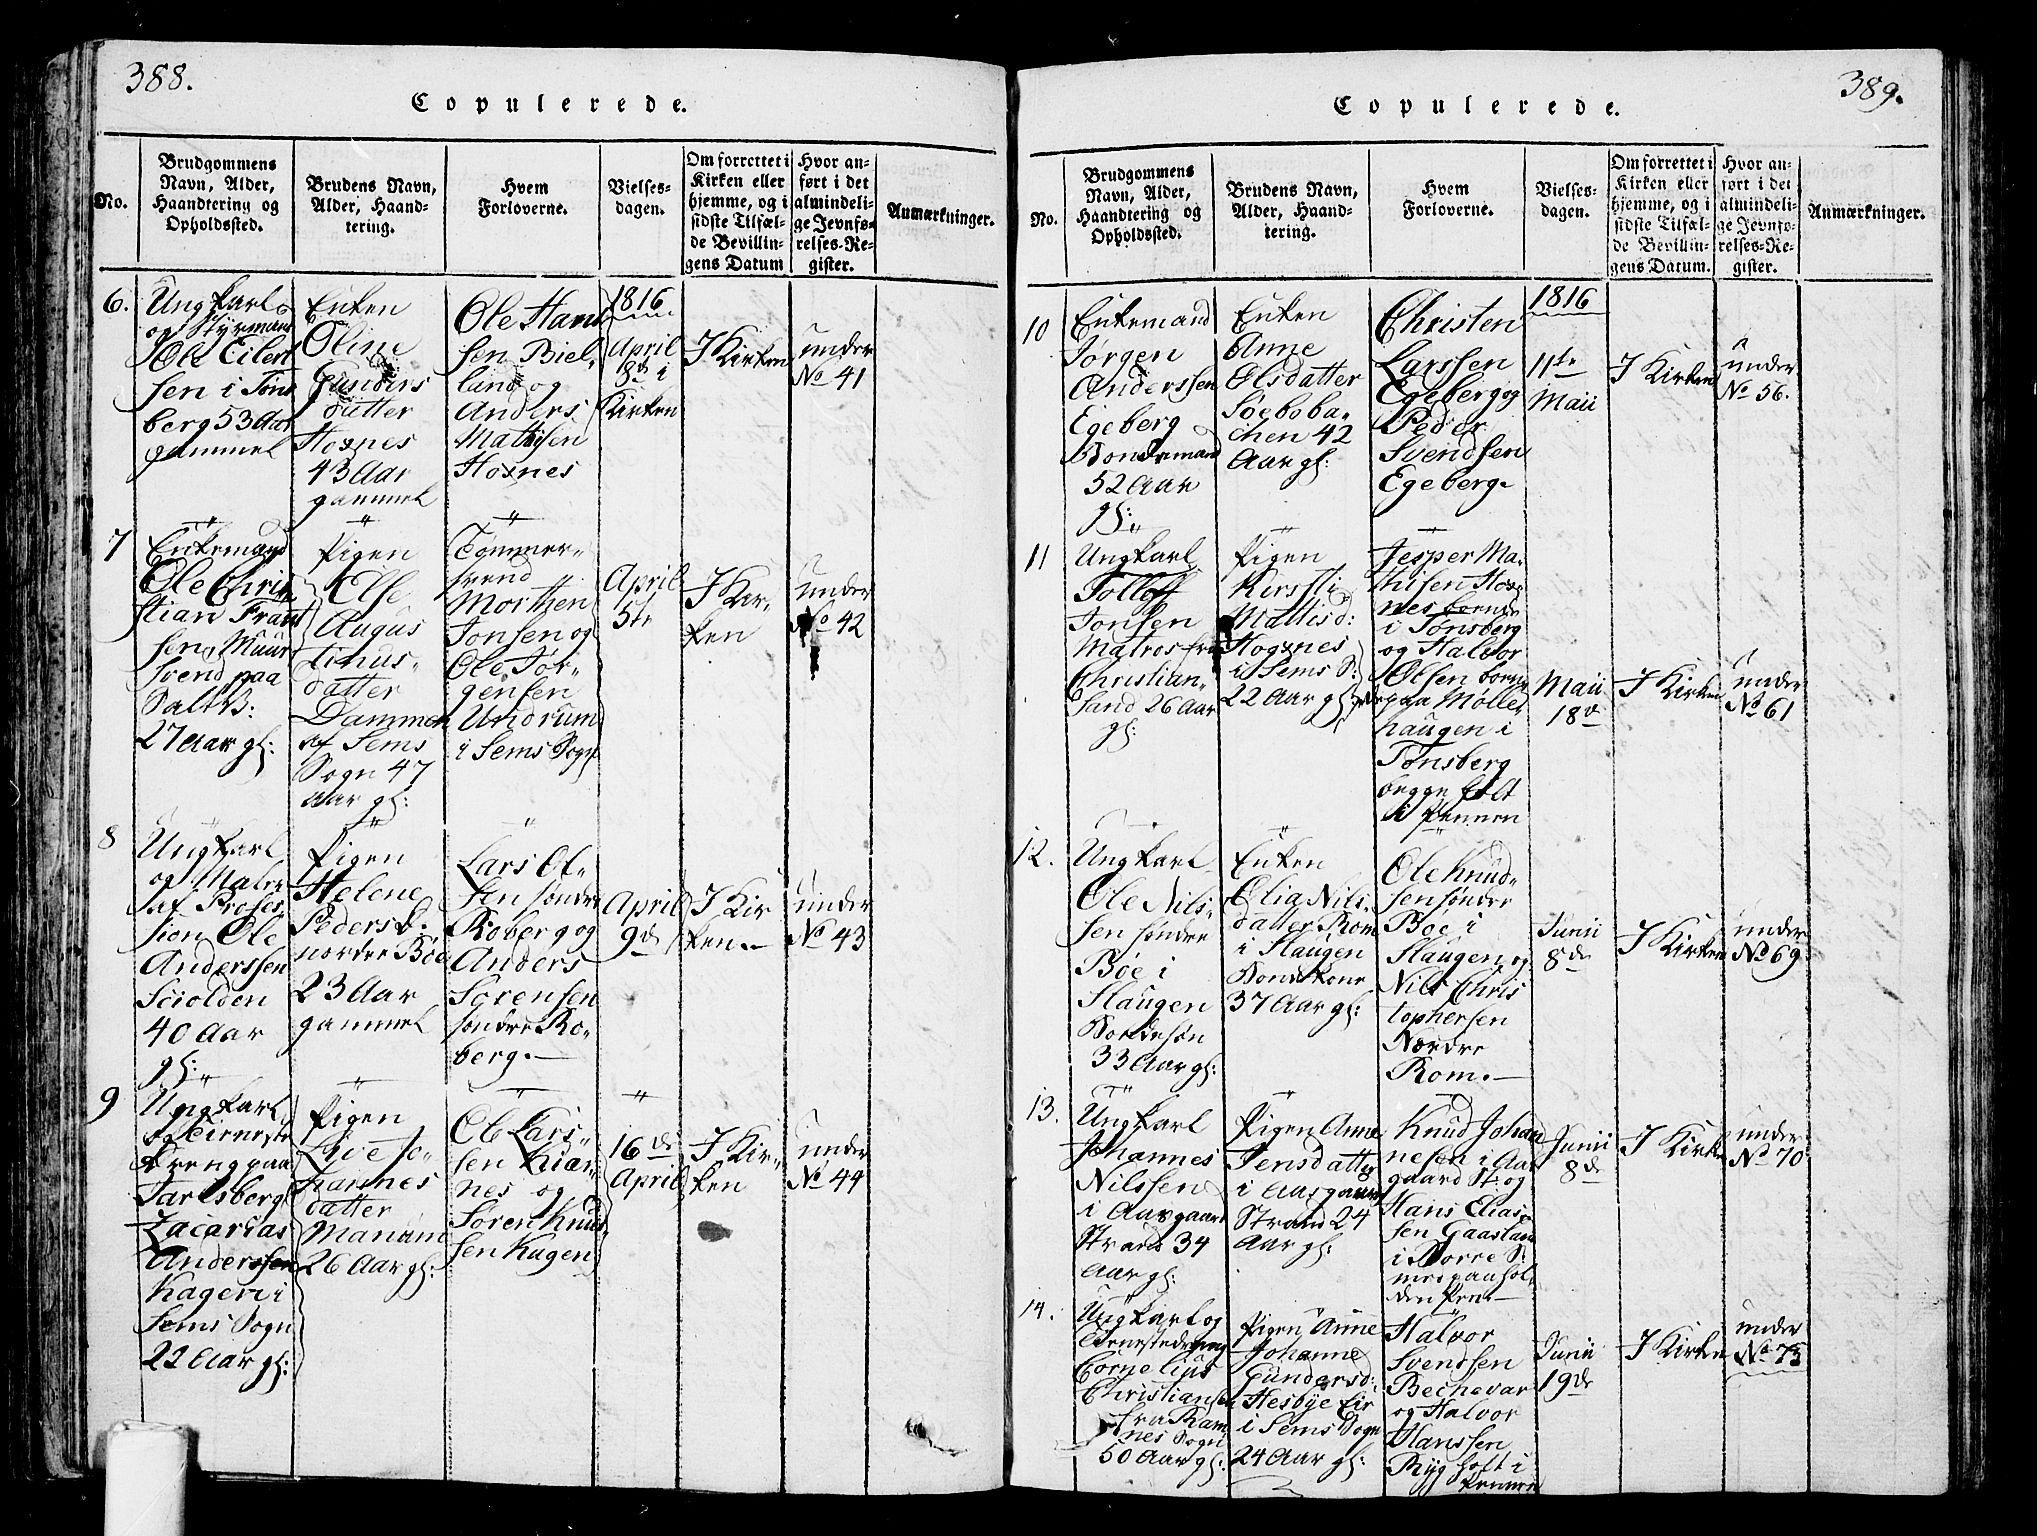 388.
Copulerede.
No.
Brudgommens
Navn, Alder,
Haandtering og
Opholdssted.
Brudens Navn,
Alder, Haand-
tering.
Hvem
Forloverne.
Vielses-
dagen.
Om forrettet i
Kirken eller
hjemme, og i
sidste Tilfæl-
de Bevillin-
gens Datum
Hvor an-
ført i det
almindeli-
ge Jevnfø-
relses-Re-
gister.
Anmærkninger.
6.
Ungkarl
og Styrmand
Ole Eilert
sen i Töns
berg 53 Aar
gammel
Enken
Oline
Gunders
datter
Hoxnes
43 Aar
gammel
Ole Hans
sen Biel-
land og
Anders
Mathisen
Hoxnes
1816
April
8de i
Kirken
I Kirken
under
No 41
7
Enkemand
Ole Chris
stian Frant
sen, Muur
svend paa
Saltv:
27 Aar gl:
Pigen
Else
Augus
tinus-
datter
Dammen
af Sems
Sogn 47
Aar gl:
Tømmer-
svend
Morthen
Jonsen og
Ole Jør-
gensen
Undrum
i Sems Sogn
April
5te
I Kir-
ken
under
No 42
8
Ungkarl
og Maler
af Profes
sion Ole
Anderssen
Sciolden
40 Aar
gl:
Pigen
Helene
Pedersd:
nordre Böe
23 Aar
gammel
Lars Ol-
sen söndre
Roberg og
Anders
Sörensen
söndre Ro-
berg.
April
9de
I Kir
ken.
under
No 43
9
Ungkarl
og Tieneste
dreng paa
Jarlsberg
Zacarias
Anderssen
Kagen i
Sems Sogn
22 Aar gl:
Pigen
Live Jo-
hannes
datter
Manum
26 Aar gl:
Ole Lars-
sen Kiær
nes og
Sören Knud
sen Kagen
16de
April
I Kir-
ken
under
No 44
389.
Copulerede.
No.
Brudgommens
Navn, Alder,
Haandtering og
Opholdssted.
Brudens Navn,
Alder, Haand-
tering.
Hvem
Forloverne.
Vielses-
dagen.
Om forrettet i
Kirken eller
hjemme, og i
sidste Tilfæl-
de Bevillin-
gens Datum.
Hvor an-
ført i det
almindeli-
ge Jevnfø-
relses-Re-
gister.
Anmærkninger.
10
Enkemand
Jörgen
Anderssen
Egeberg
Bondemand
52 Aar
gl:
Enken
Anne
Olsdatter
Söeboba-
chen 42
Aar gl:
Christen
Larssen
Egeberg og
Peder
Svendsen
Egeberg.
1816
11te
Maii
I Kirken
under
No 56.
11
Ungkarl
Tollof
Jonsen
Matros fra
Christian-
sand 26 Aar
gl:
Pigen
Kersti
Mattisd:
Hogsnes
i Sems S:
22 Aar gl:
Jesper Ma-
thisen Hox-
nes boende
i Tönsberg
og Halvor
Olsen boende
paa Mølle
haugen i
Tönsberg
begge holt
i Pennen
Maii
18de
I Kirken
under
No 61
12.
Ungkarl
Ole Nils-
sen söndre
Böe i
Slaugen
Bondesön
33 Aar gl:
Enken
Olia Nils-
datter Rom
i Slaugen
Bondekone
37 Aar gl:
Ole Knud-
sen söndre
Böe i
Slaugen og
Nils Chris
tophersen
Nordre
Rom.
Junii
8de
I Kirken
under
No 69
13.
Ungkarl
Johannes
Nilssen
i Aasgaard
Strand 34
Aar gl:
Pigen Anne
Jensdatter
i Aasgaard
Strand 24
Aar gl:
Knud Johan
nesen i Aas
gaard St: og
Hans Elias-
sen Gaasland
i Borre S:
med paahol-
den Pen.
Junii
8de
I Kirken
under
No 70
14.
Ungkarl og
Tienestedreng
Cornelius
Christiansen
fra Ram
nes Sogn
50 Aar gl:
Pigen Anne
Johanne
Gundersd:
Hesbye Eie
i Sems Sogn
24 Aar gl:
Halvor
Svenssen
Bechevar
og Halvor
Hanssen
Ryg holt i
Pennen
Junii
19de
I Kirken
under
No 73